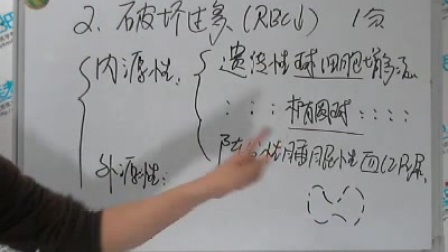 2、破坏过多(RBC↓) 1分
内源性： 遗传性球细胞增多症
： ： ： 椭圆形 ： ： ： ：
阵发性睡眠性血红尿
外源性：